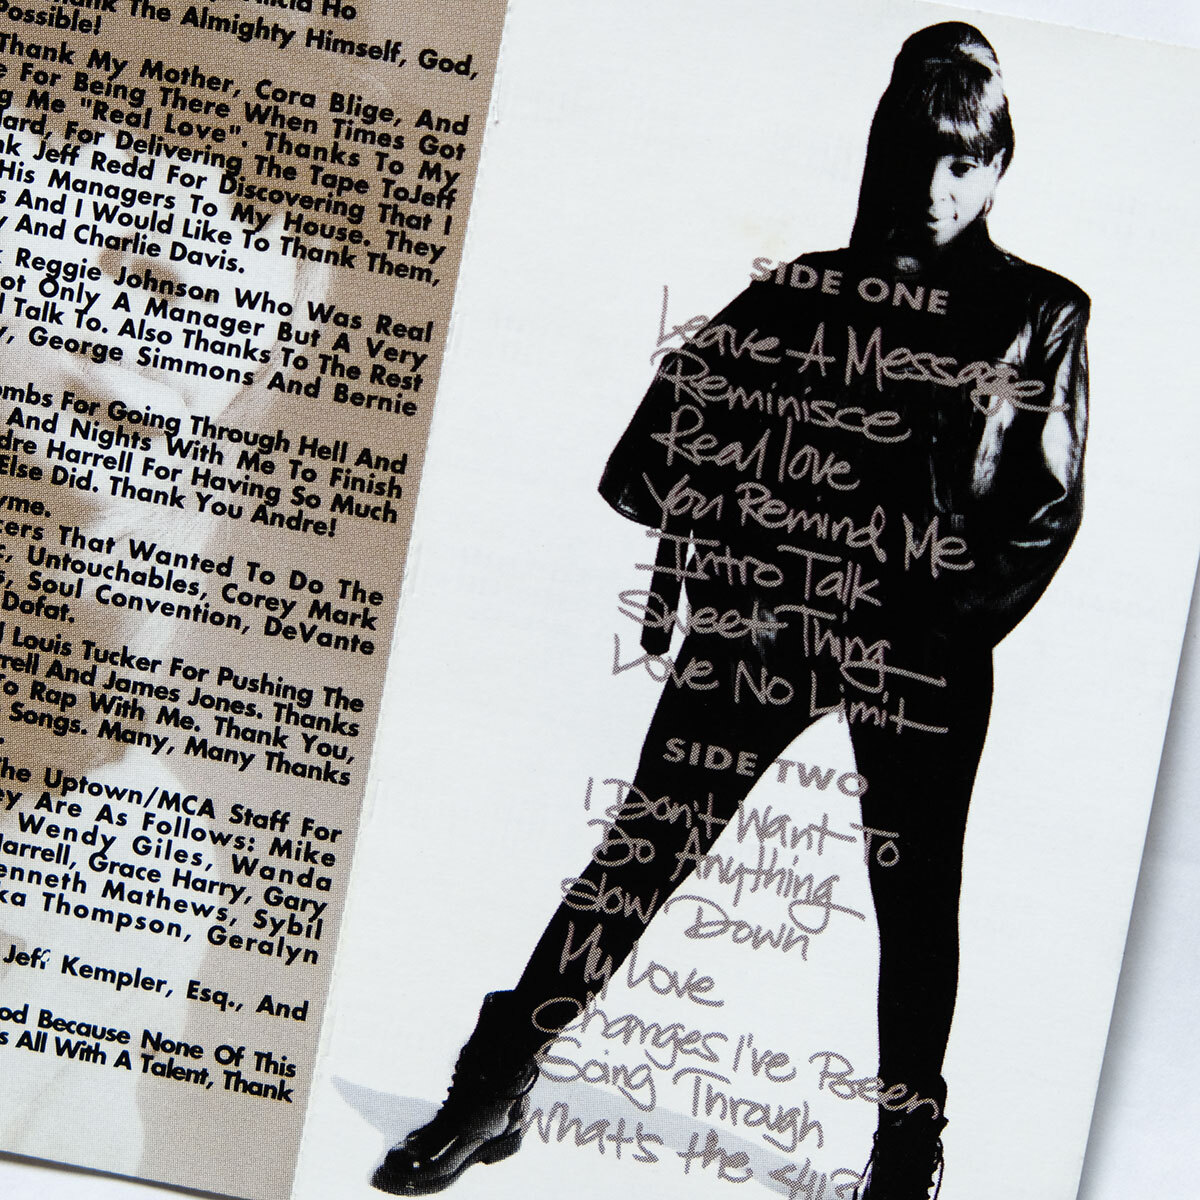 Ho
The Almighty Himself, God,
Possible!
Thank My Mother, Cora Blige, And
For Being There When Times Got
Me "Real Love". Thanks To My
For Delivering The Tape ToJeff
Jeff Redd For Discovering That I
His Managers To My House. They
And I Would Like To Thank Them,
And Charlie Davis.
Reggie Johnson Who Was Real
Only A Manager But A Very
Talk To. Also Thanks To The Rest
George Simmons And Bernie
For Going Through Hell And
And Nights With Me To Finish
Harrell For Having So Much
Else Did. Thank You Andre!
That Wanted To Do The
Untouchables, Corey Mark
Soul Convention, DeVante
Dofat.
Louis Tucker For Pushing The
And James Jones. Thanks
To Rap With Me. Thank You,
Songs. Many, Many Thanks
The Uptown/MCA Staff For
Are As Follows: Mike
Wendy Giles, Wanda
Harrell, Grace Harry, Gary
Kenneth Mathews, Sybil
Thompson, Geralyn
Jeff Kempler, Esq., And
Because None Of This
All With A Talent, Thank
SIDE ONE
Leave A Message
Reminisce
Real love
You Remind Me
Intro Talk
Sweet Thing
Love No Limit
SIDE TWO
I Don't Want To
Do Anything
Slow Down
My Love
Changes I've Been
Going Through
What's the 411?